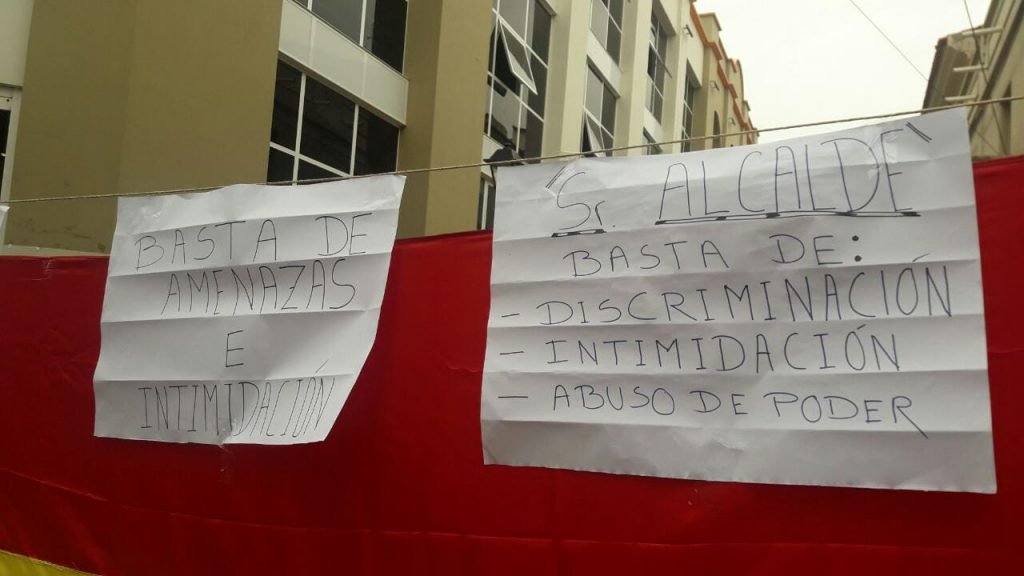 BASTA DE
AMENAZAS
E
INTIMIDACIÓN
"Sr. ALCALDE"
BASTA DE:
- DISCRIMINACIÓN
- INTIMIDACIÓN
- ABUSO DE PODER